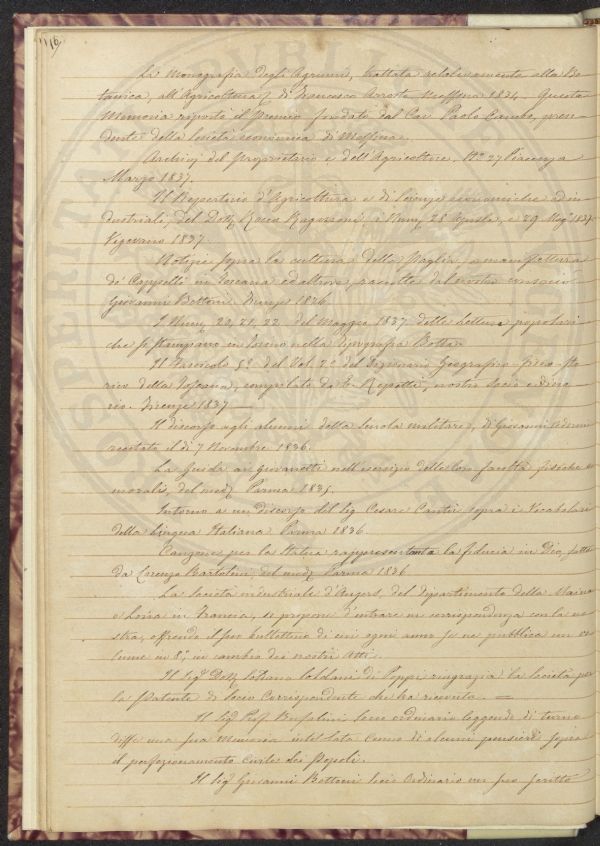 116
La Monografia degli Agrumi, trattata relativamente alla Bo-
tanica, all'Agricoltura di Francesco Arrosto Messina 1834. Questa
Memoria riportò il Premio fondato dal Cav. Paolo Cumbo, presi-
dente della Società economica di Messina.
Archiv. del proprietario e dell'Agricoltore, N.º 27 Piacenza
Marzo 1837.
Il Repertorio d'Agricoltura e di Scienze economiche ed in-
dustriali, del Dott. Rocco Ragazzoni, i Num. 28 Aprile, e 29 Mag. 1837
Vigevano 1837
Notizie sopra la cultura della Paglia, e manifatture
de' Cappelli in Toscana ed altrove, raccolte dal nostro consocio
Giovanni Bottoni Firenze 1836
I Num. 20, 21, 22 del Maggio 1837 delle letture popolari
che si stampano in Torino nella Tipografia Botta.
Il Fascicolo 5º del Vol. 2º del Dizionario Geografico-fisico-sto-
rico della Toscana, compilato da E. Repetti, nostro socio ordina-
rio. Firenze 1837
Il discorso agli alunni della Scuola militare, di Giovanni
recitato il dì 7 Novembre 1836.
La Guida ai giovanetti nell'esercizio delle loro facoltà fisiche e
morali, del med. Parma 1835.
Intorno a un discorso del Sig. Cesare Cantù sopra i Vocabolari
della Lingua Italiana Parma 1836.
Canzone per la Statua rappresentante la fiducia in Dio, fatta
da Lorenzo Bartolini, del med. Parma 1836
La Società industriale d'Angers, del dipartimento della Maina
e Loira in Francia, si propone d'entrare in corrispondenza con la no
stra, offrendo il suo bullettino di cui ogni anno se ne pubblica un vo
lume in 8º, in cambio dei nostri Atti.
Il Sig. Dott. Soldani di Poppi, ringrazia la Società per
la patente di Socio Corrispondente che ha ricevuta. =
Il Sig. Prof. Bufalini Socio ordinario leggendo di turno
disse una sua Memoria intitolata Cenno di alcuni pensieri sopra
il perfezionamento civile dei Popoli.
Il Sig. Giovanni Bottoni Socio Ordinario in suo scritto